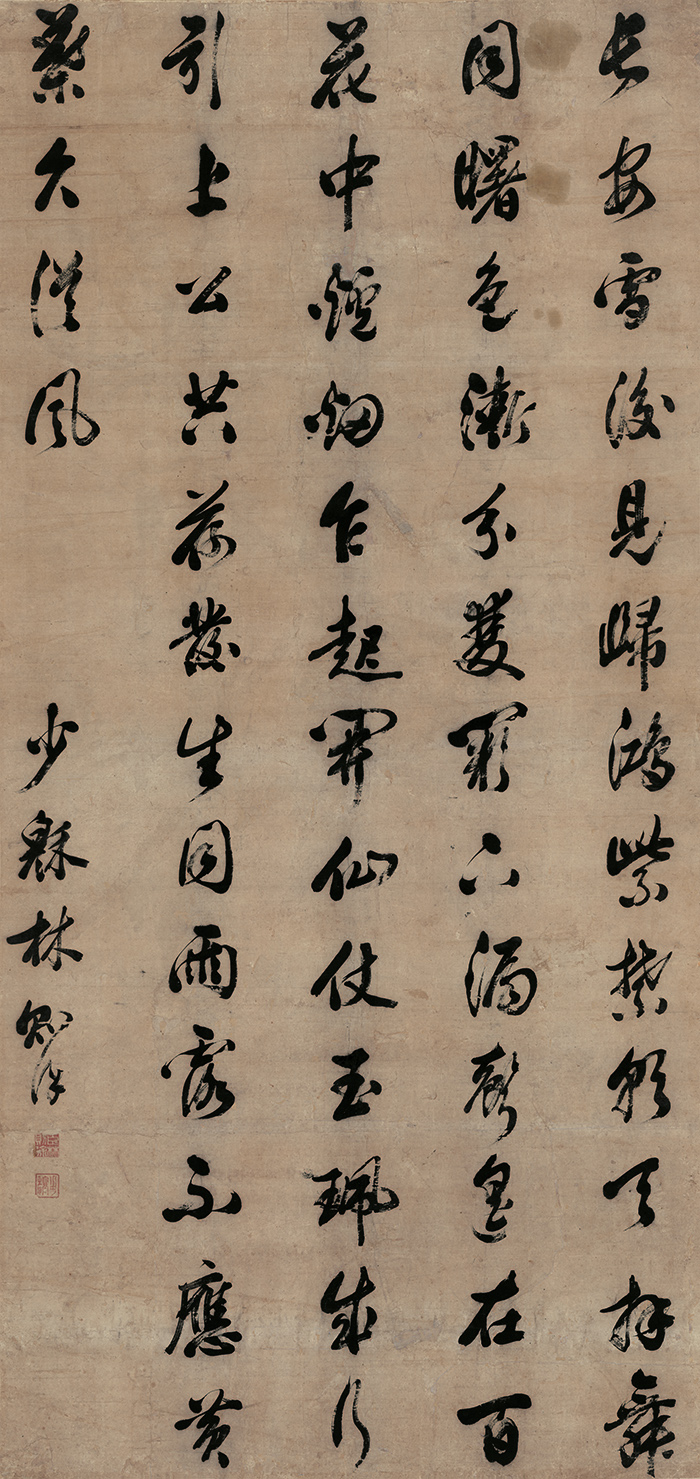 長安雪後見歸鴻紫禁朝天拜舞
同曙色漸分雙闕下漏聲遥在百
花中爐烟乍起開仙仗玉珮成行
引上公共荷發生同雨露不應黄
葉久從風
少穆林則徐